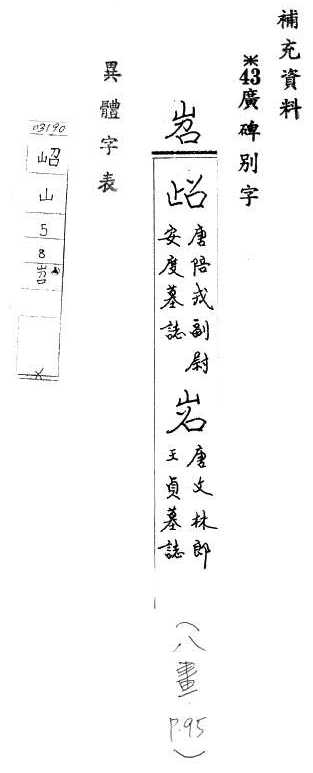 補充資料
※43廣碑別字
岧
唐陪戎副尉
安度墓誌
唐文林郎
王貞墓誌
(八畫 P.95)
異體字表
03190
岹
山
5
8
岧▲
×